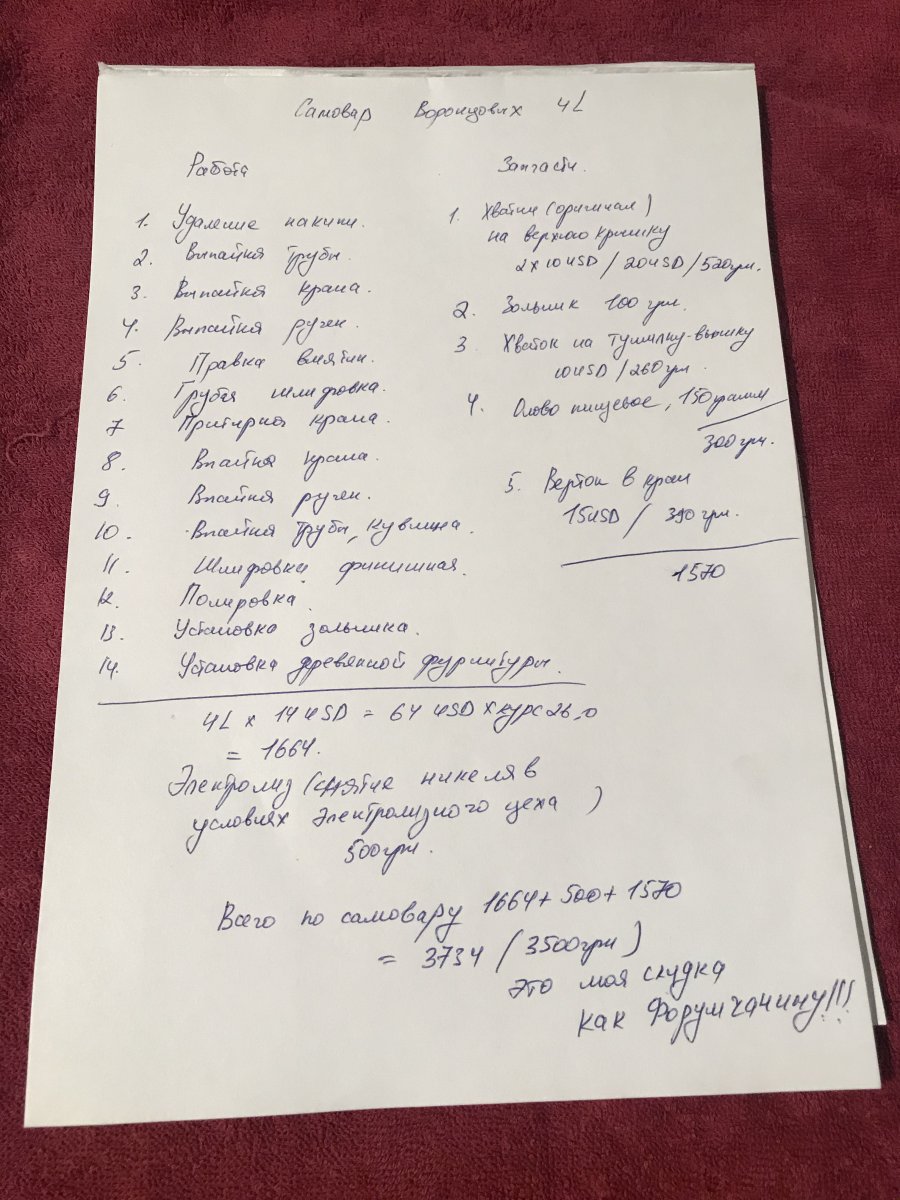 Самовар Воронцовых 4L
Работа
1. Удаление накипи.
2. Выпайка трубы.
3. Выпайка крана.
4. Выпайка ручек.
5 Правка вмятин.
6. Грубая шлифовка.
7 Притирка крана.
8. Впайка крана.
9. Впайка ручек.
10. Впайка трубы, кувшина.
11. Шлифовка финишная.
12. Полировка.
13. Установка зольника.
14. Установка древянной фурнитуры.
4L x 14 USD = 64 USD x курс 26,0
= 1664.
Электролиз (снятие никеля в
условиях электролизного цеха )
500грн.
Запчасти.
1. Хватки (оригинал)
на верхнюю крышку
2 x 10 USD / 20 USD / 520 грн.
2. Зольник 100 грн.
3 Хваток на тушилку-вышку
10 USD / 260 грн.
4. Олово пищевое, 150 грамм
300 грн.
5. Верток в кран
15 USD / 390 грн.
1570
Всего по самовару 1664 + 500 + 1570
= 3734 (3500грн)
это моя скидка
как Форумчанину!!!